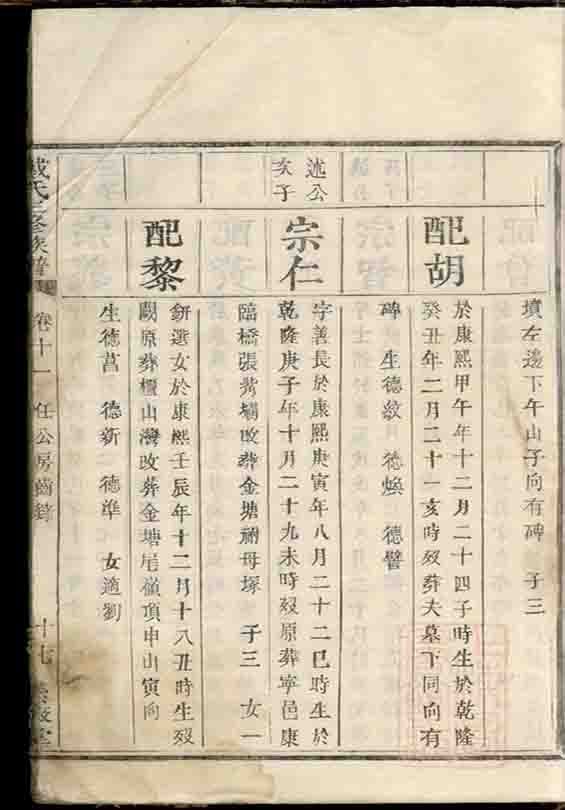 墳左邊下午山子向有碑 子三
配胡
於康熙甲午年十二月二十四子時生於乾隆
癸丑年二月二十一亥時歿葬夫墓下同向有
碑 生德紋 德煥 德譬
述公
次子
宗仁
字善長於康熙庚寅年八月二十二巳時生於
乾隆庚子年十月二十九未時歿原葬寧邑康
臨橋張家壩改葬金塘祔母塚 子三 女一
配黎
女於康熙壬辰年十二月十八丑時生歿
闕原葬檀山灣改葬金塘眉嶺頂申山寅向
生德菖 德新 德準 女適劉
戴氏三修族譜 卷十一 任公房齒錄 十七